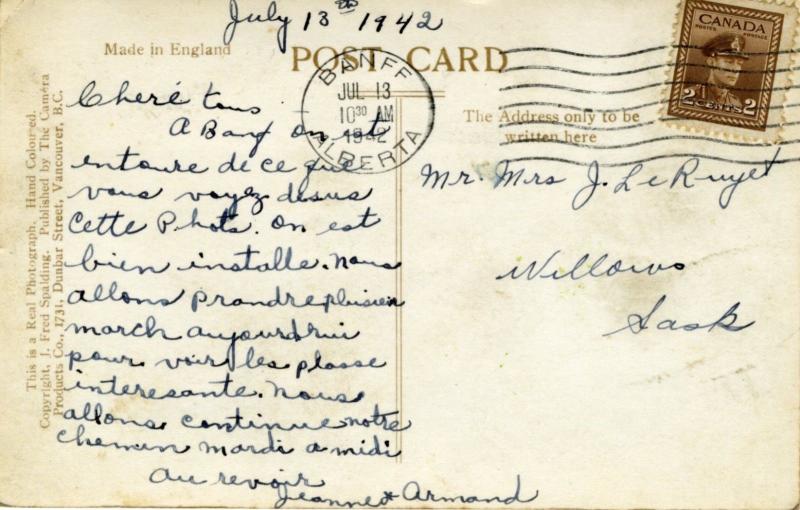 July 13th 1942
Made in England
POST CARD
CANADA
POSTES POSTAGE
2 CENTS 2
BANFF
JUL 13
10 30 AM
1942
ALBERTA
The Address only to be
written here
This is a Real Photograph. Hand Coloured.
Copyright, J. Fred Spalding. Published by The Camera
Products Co., 1731, Dunbar Street, Vancouver, B.C.
Cheré tous
A Banf on est
entoure de ce que
vous voyez desus
cette Photo. On est
bien installe. Nous
allons prandre plusieur
march aujourdhui
pour voir les plasse
interesante. Nous
allons continue notre
chemin mardi a midi
au revoir
Jeanne & Armand
Mr. Mrs J. LeRuyet
Willows
Sask